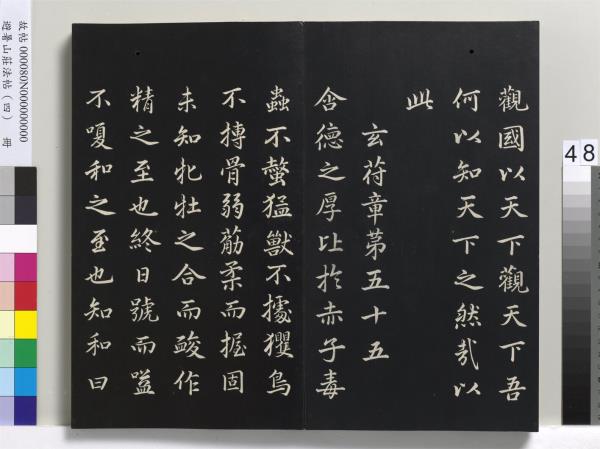 觀國以天下觀天下吾
何以知天下之然哉以
此
玄符章第五十五
含德之厚比於赤子毒
蟲不螫猛獸不據玃鳥
不搏骨弱筋柔而握固
未知牝牡之合而酸作
精之至也終日號而嗌
不嗄和之至也知和曰
故帖 000080N000000000
避暑山莊法帖(四) 冊
48